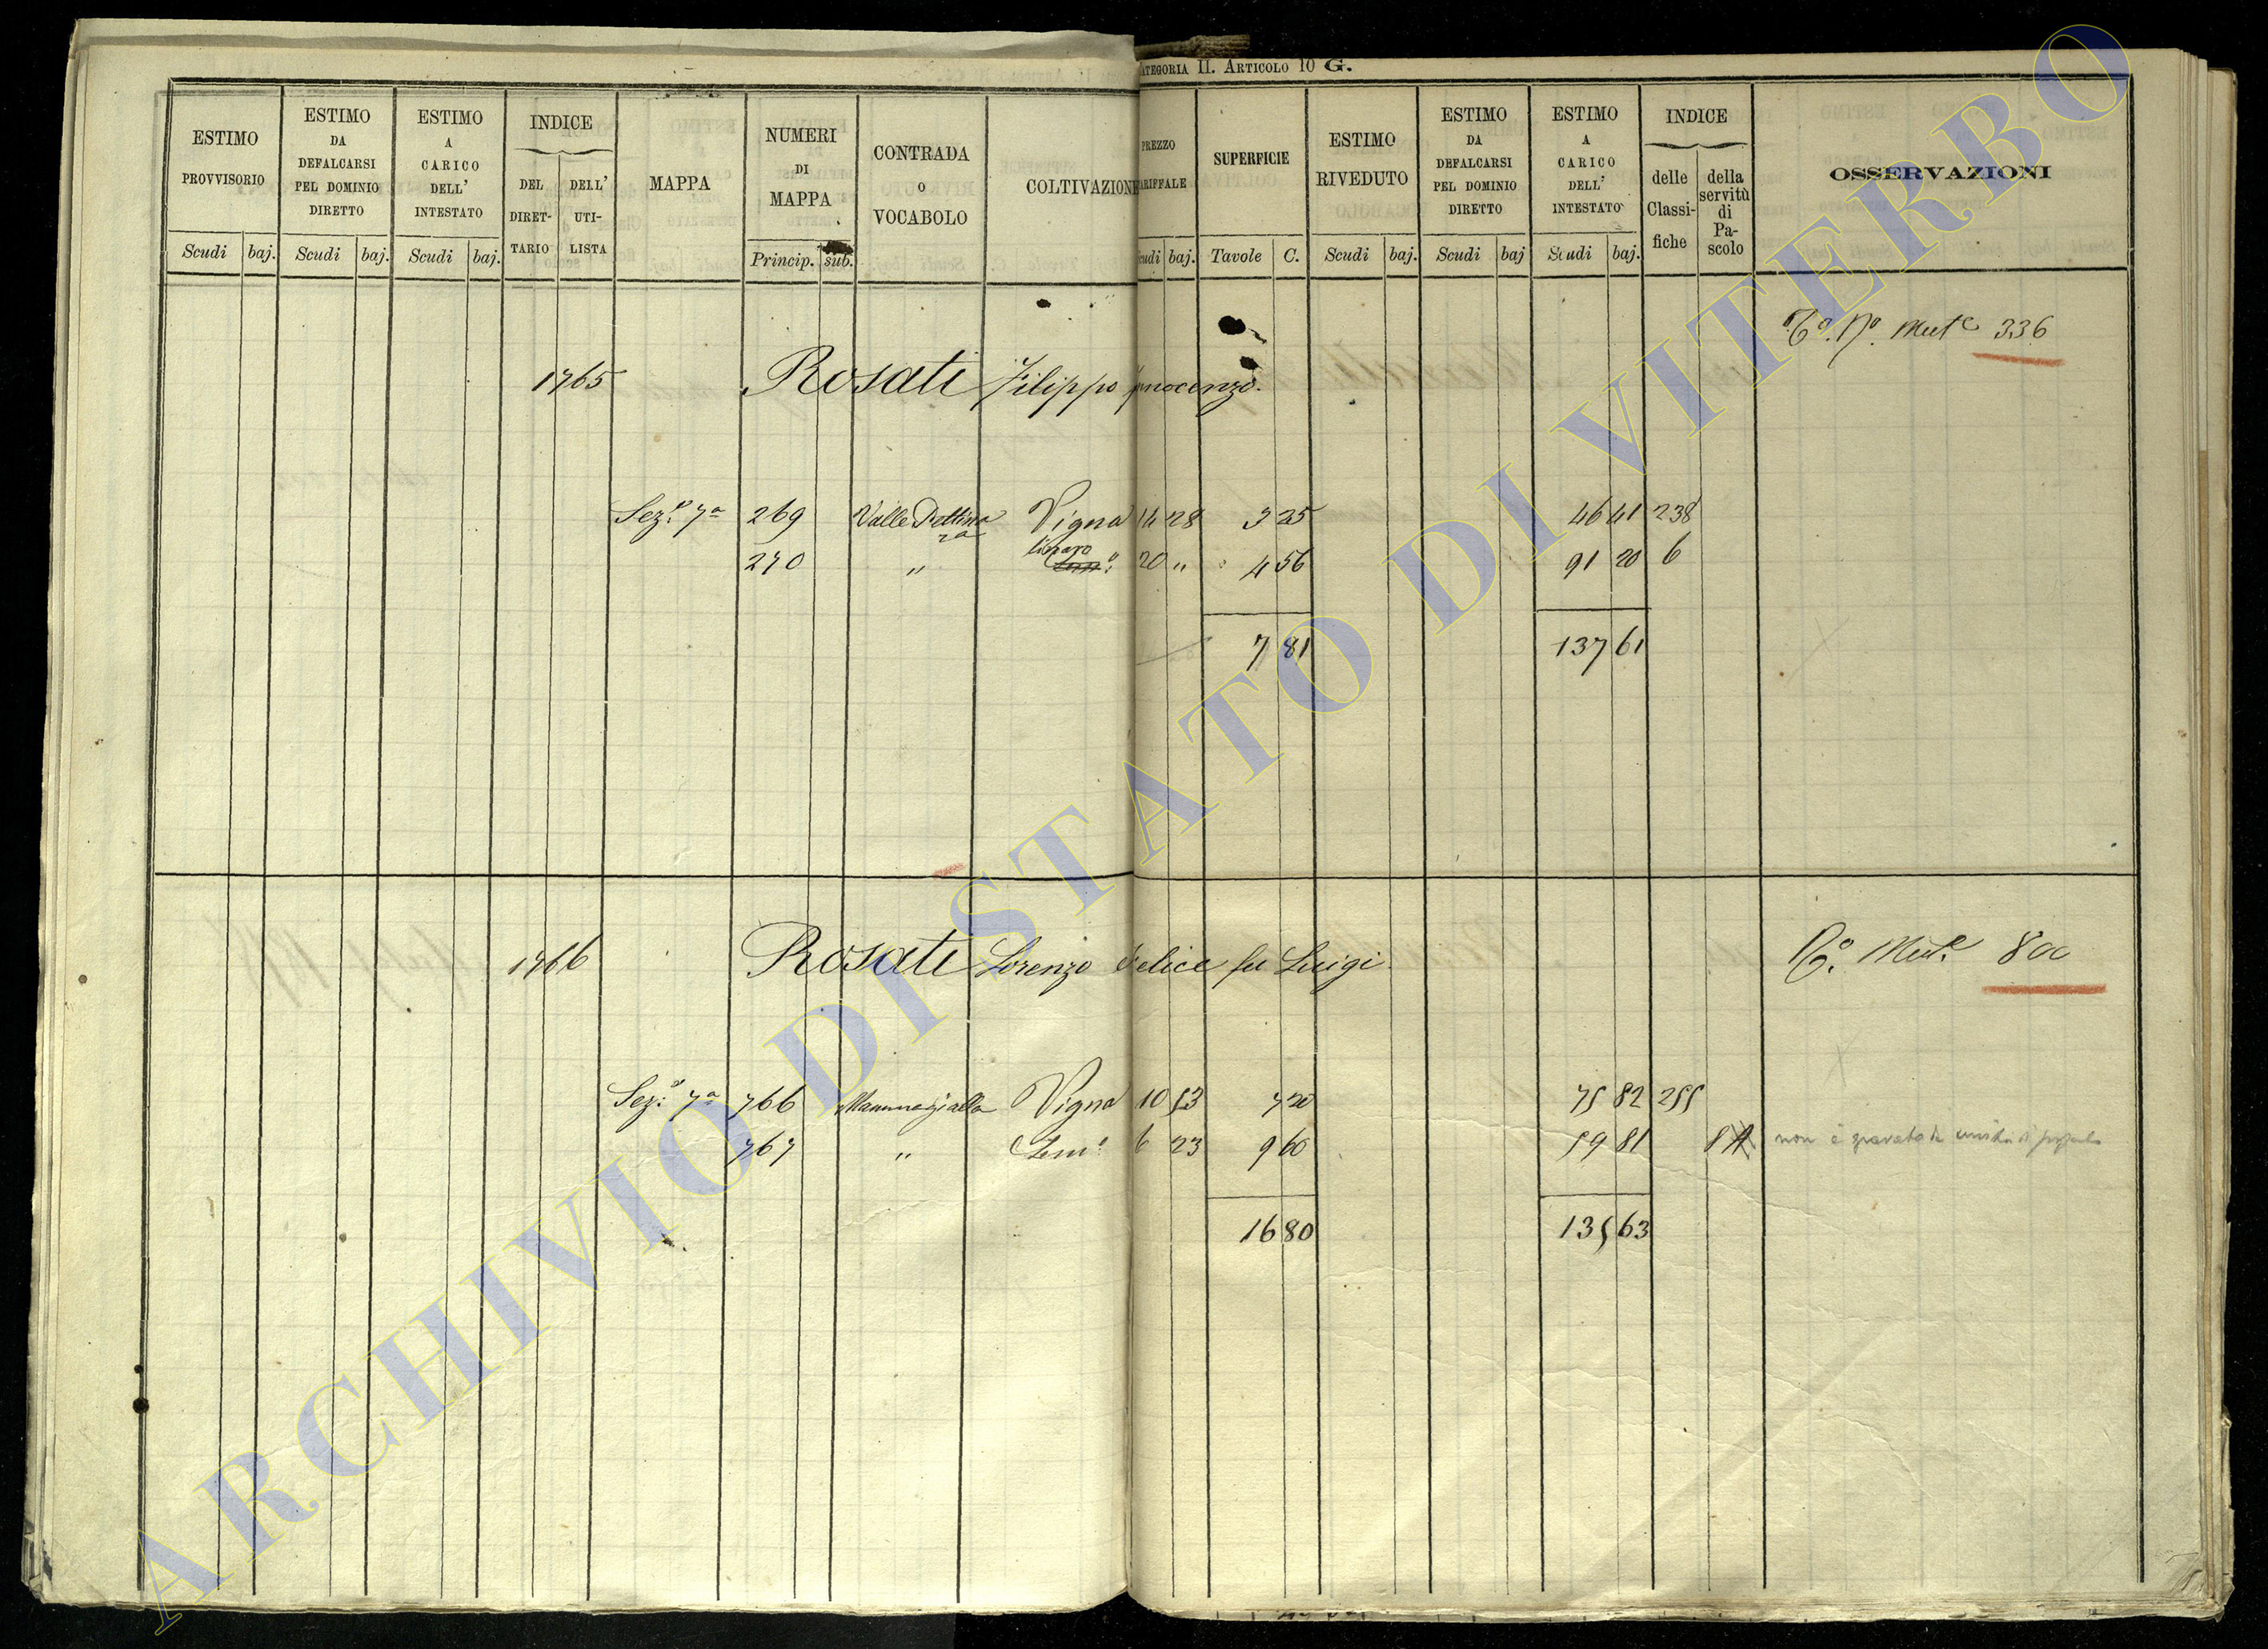 ATEGORIA II. ARTICOLO 10 G.
ESTIMO PROVVISORIO
Scudi baj.
ESTIMO DA DEFALCARSI PEL DOMINIO DIRETTO
Scudi baj.
ESTIMO A CARICO DELL' INTESTATO
Scudi baj.
INDICE
DEL DIRET-TARIO
DELL' UTI-LISTA
MAPPA
NUMERI DI MAPPA
Princip. sub.
CONTRADA O VOCABOLO
COLTIVAZIONE
PREZZO
ARIFFALE
udi baj.
SUPERFICIE
Tavole C.
ESTIMO RIVEDUTO
Scudi baj.
ESTIMO DA DEFALCARSI PEL DOMINIO DIRETTO
Scudi baj
ESTIMO A CARICO DELL' INTESTATO
Scudi baj.
INDICE
delle Classi-fiche
della servitù di Pa-scolo
OSSERVAZIONI
Mut.e 336
1765 Rosati Filippo Innocenzo.
Sez.e 7a 269 Valle Vigna 14 28 3 25 46 41 238
270 " 20 " 4 56 91 20 6
7 81 137 61
1766 Rosati Lorenzo Felice fu Luigi
Mut.
Sez.e 7a 766 Mammagialla Vigna 10 53 7 20 75 82 255
767 " Sem.o 6 23 9 60 59 81 8 non è
16 80 135 63
ARCHIVIO DI STATO DI VITERBO